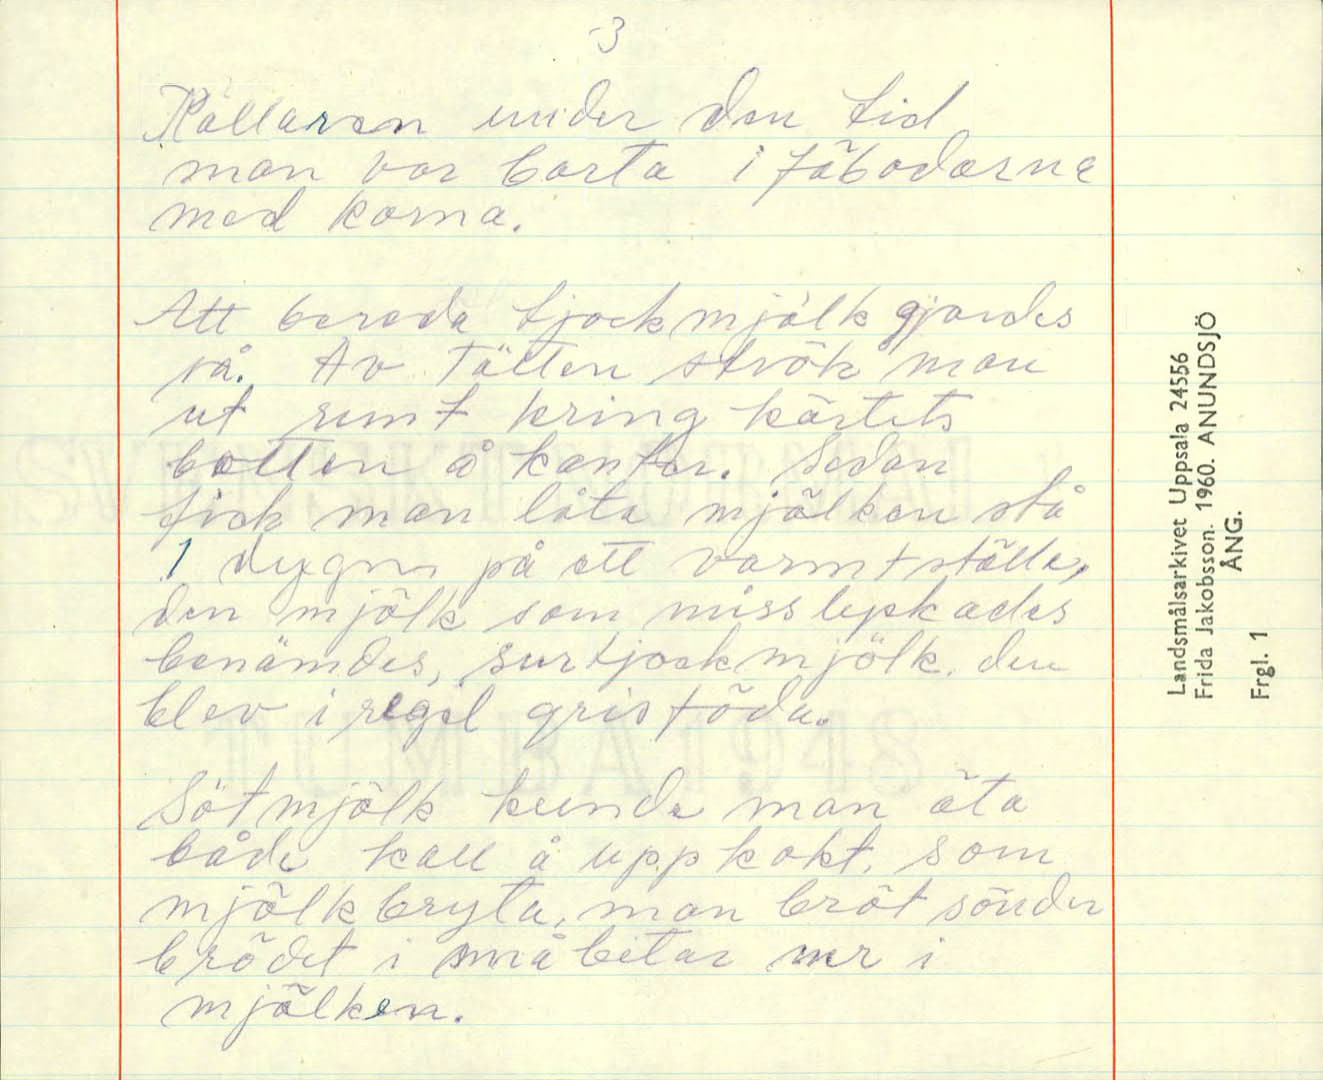 3
Källaren under den tid
man var borta i fäbodarne
med korna.
Att bereda tjockmjölk gjordes
så. Av Tätten strök man
ut runt kring kärlets
botten å kanter. Sedan
fick man låta mjölken stå
1 dygn på ett varmt ställe,
den mjölk som misslyckades
benämdes, surtjockmjölk. den
blev i regel grisföda.
Sötmjölk kunde man äta
både kall å uppkokt, som
mjölkbryta, man bröt sönder
brödet i småbitar ner i
mjölken.
Landsmålsarkivet Uppsala 24556
Frida Jakobsson. 1960. ANUNDSJÖ
ÅNG.
Frgl. 1